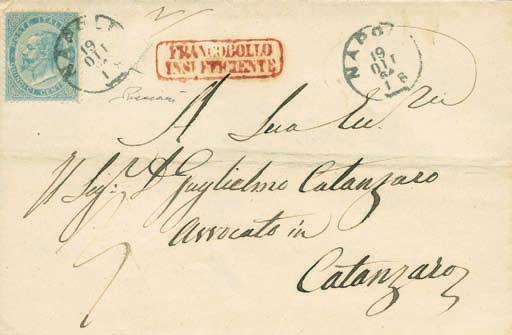 POSTE ITALIANE
QUINDICI CENT
NAPOLI
19
OTT
64
1 S
FRANCOBOLLO
INSUFFICIENTE
NAPOLI
19
OTT
64
1 S
A Sua Ecc.
Il Sig. D. Guglielmo Catanzaro
Avvocato in
Catanzaro